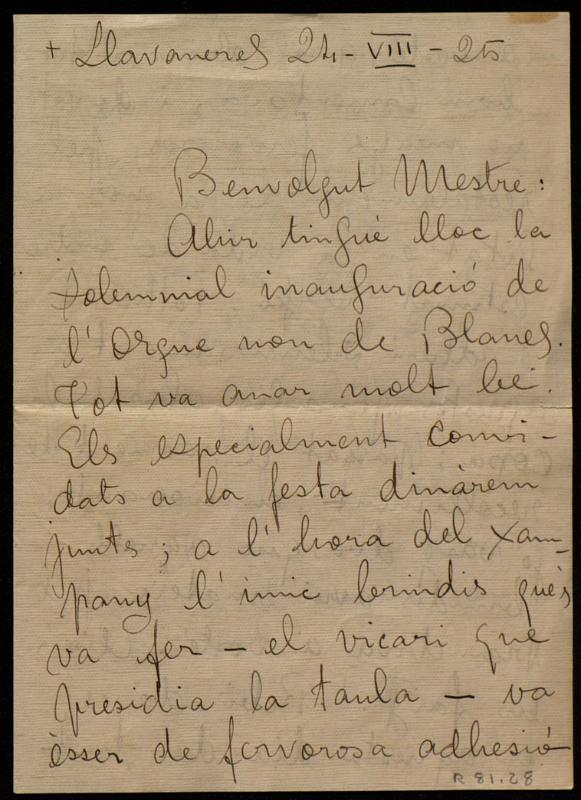 + Llavaneres 24 - VIII - 25
Benvolgut Mestre:
Ahir tingué lloc la
solemnial inauguració de
l'orgue nou de Blanes.
Tot va anar molt bé.
Els especialment convi-
dats a la festa dinàrem
junts; a l'hora del xam-
pany l'unic brindis qués
va fer - el vicari que
presidia la taula - va
ésser de fervorosa adhesió
R 81.28